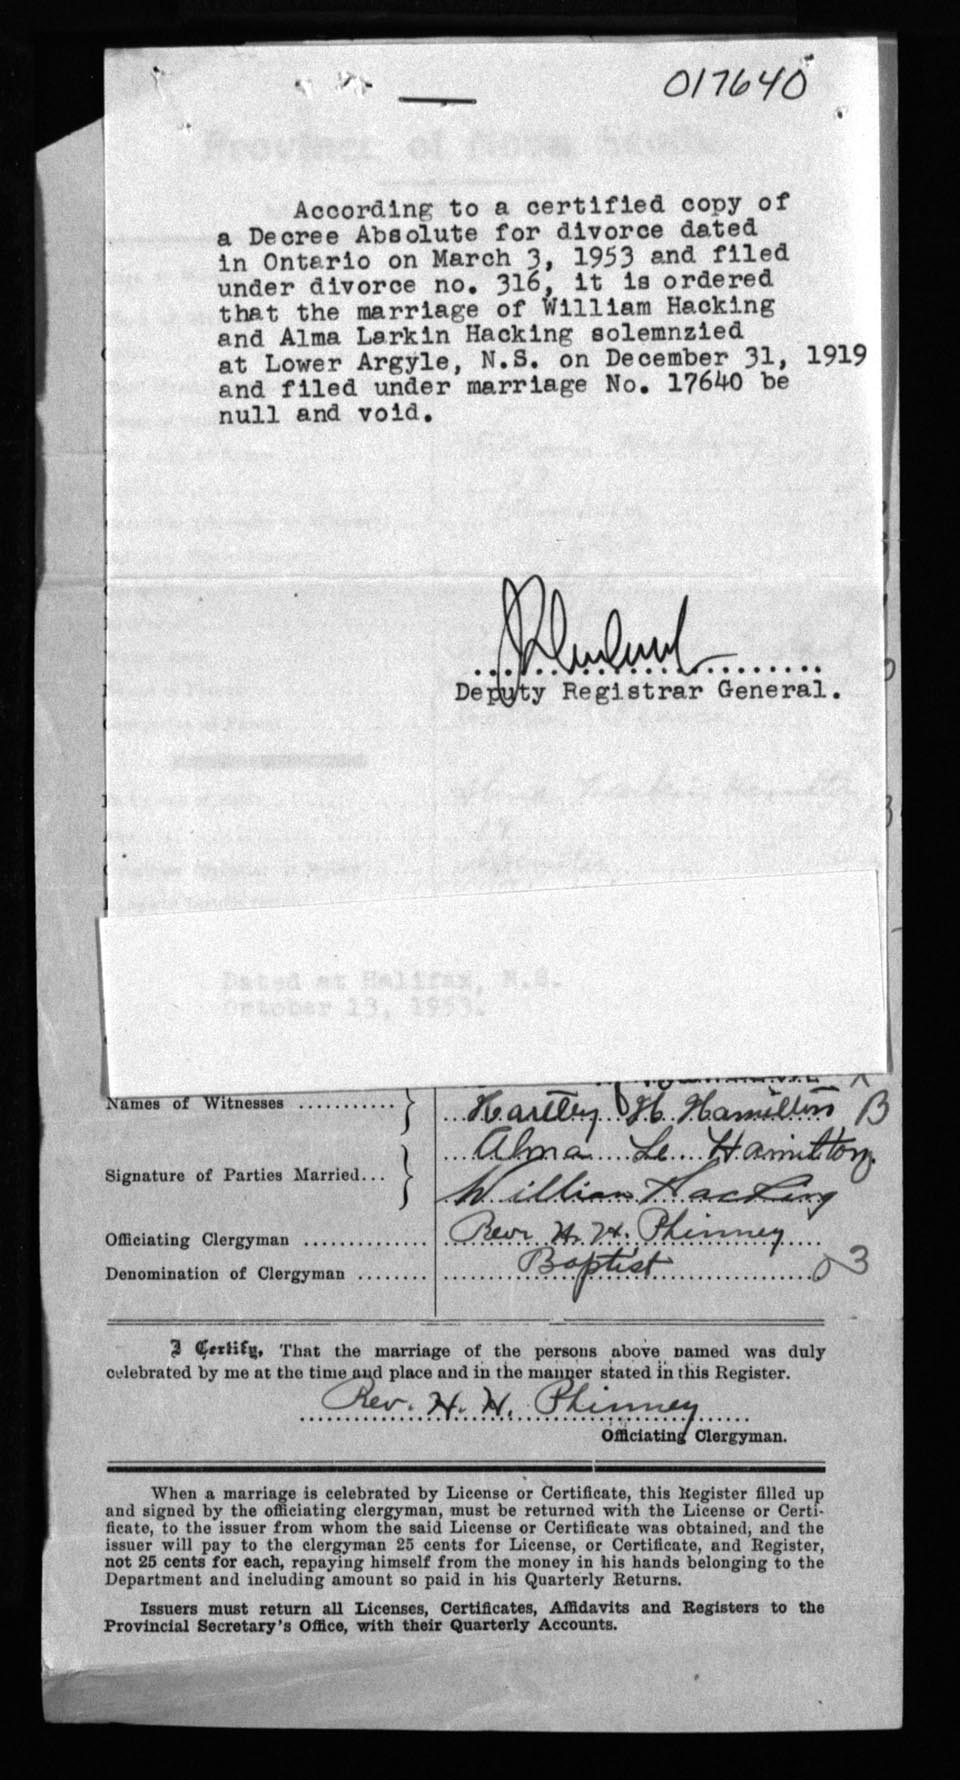 017640
Province of Nova Scotia
According to a certified copy of
a Decree Absolute for divorce dated
in Ontario on March 3, 1953 and filed
under divorce no. 316, it is ordered
that the marriage of William Hacking
and Alma Larkin Hacking solemnzied
at Lower Argyle, N.S. on December 31, 1919
and filed under marriage No. 17640 be
null and void.
Deputy Registrar General.
Dated at Halifax, N.S.
October 13, 1953.
Names of Witnesses ...........
Hartley H. Hamilton B
Signature of Parties Married...
Alma Le Hamilton
William Hacking
Officiating Clergyman ..............
Rev. H. H. Phinney
Denomination of Clergyman ........
Baptist 03
I Certify, That the marriage of the persons above named was duly
celebrated by me at the time and place and in the manner stated in this Register.
Rev. H. H. Phinney
Officiating Clergyman.
When a marriage is celebrated by License or Certificate, this Register filled up
and signed by the officiating clergyman, must be returned with the License or Certi-
ficate, to the issuer from whom the said License or Certificate was obtained, and the
issuer will pay to the clergyman 25 cents for License, or Certificate, and Register,
not 25 cents for each, repaying himself from the money in his hands belonging to the
Department and including amount so paid in his Quarterly Returns.
Issuers must return all Licenses, Certificates, Affidavits and Registers to the
Provincial Secretary's Office, with their Quarterly Accounts.